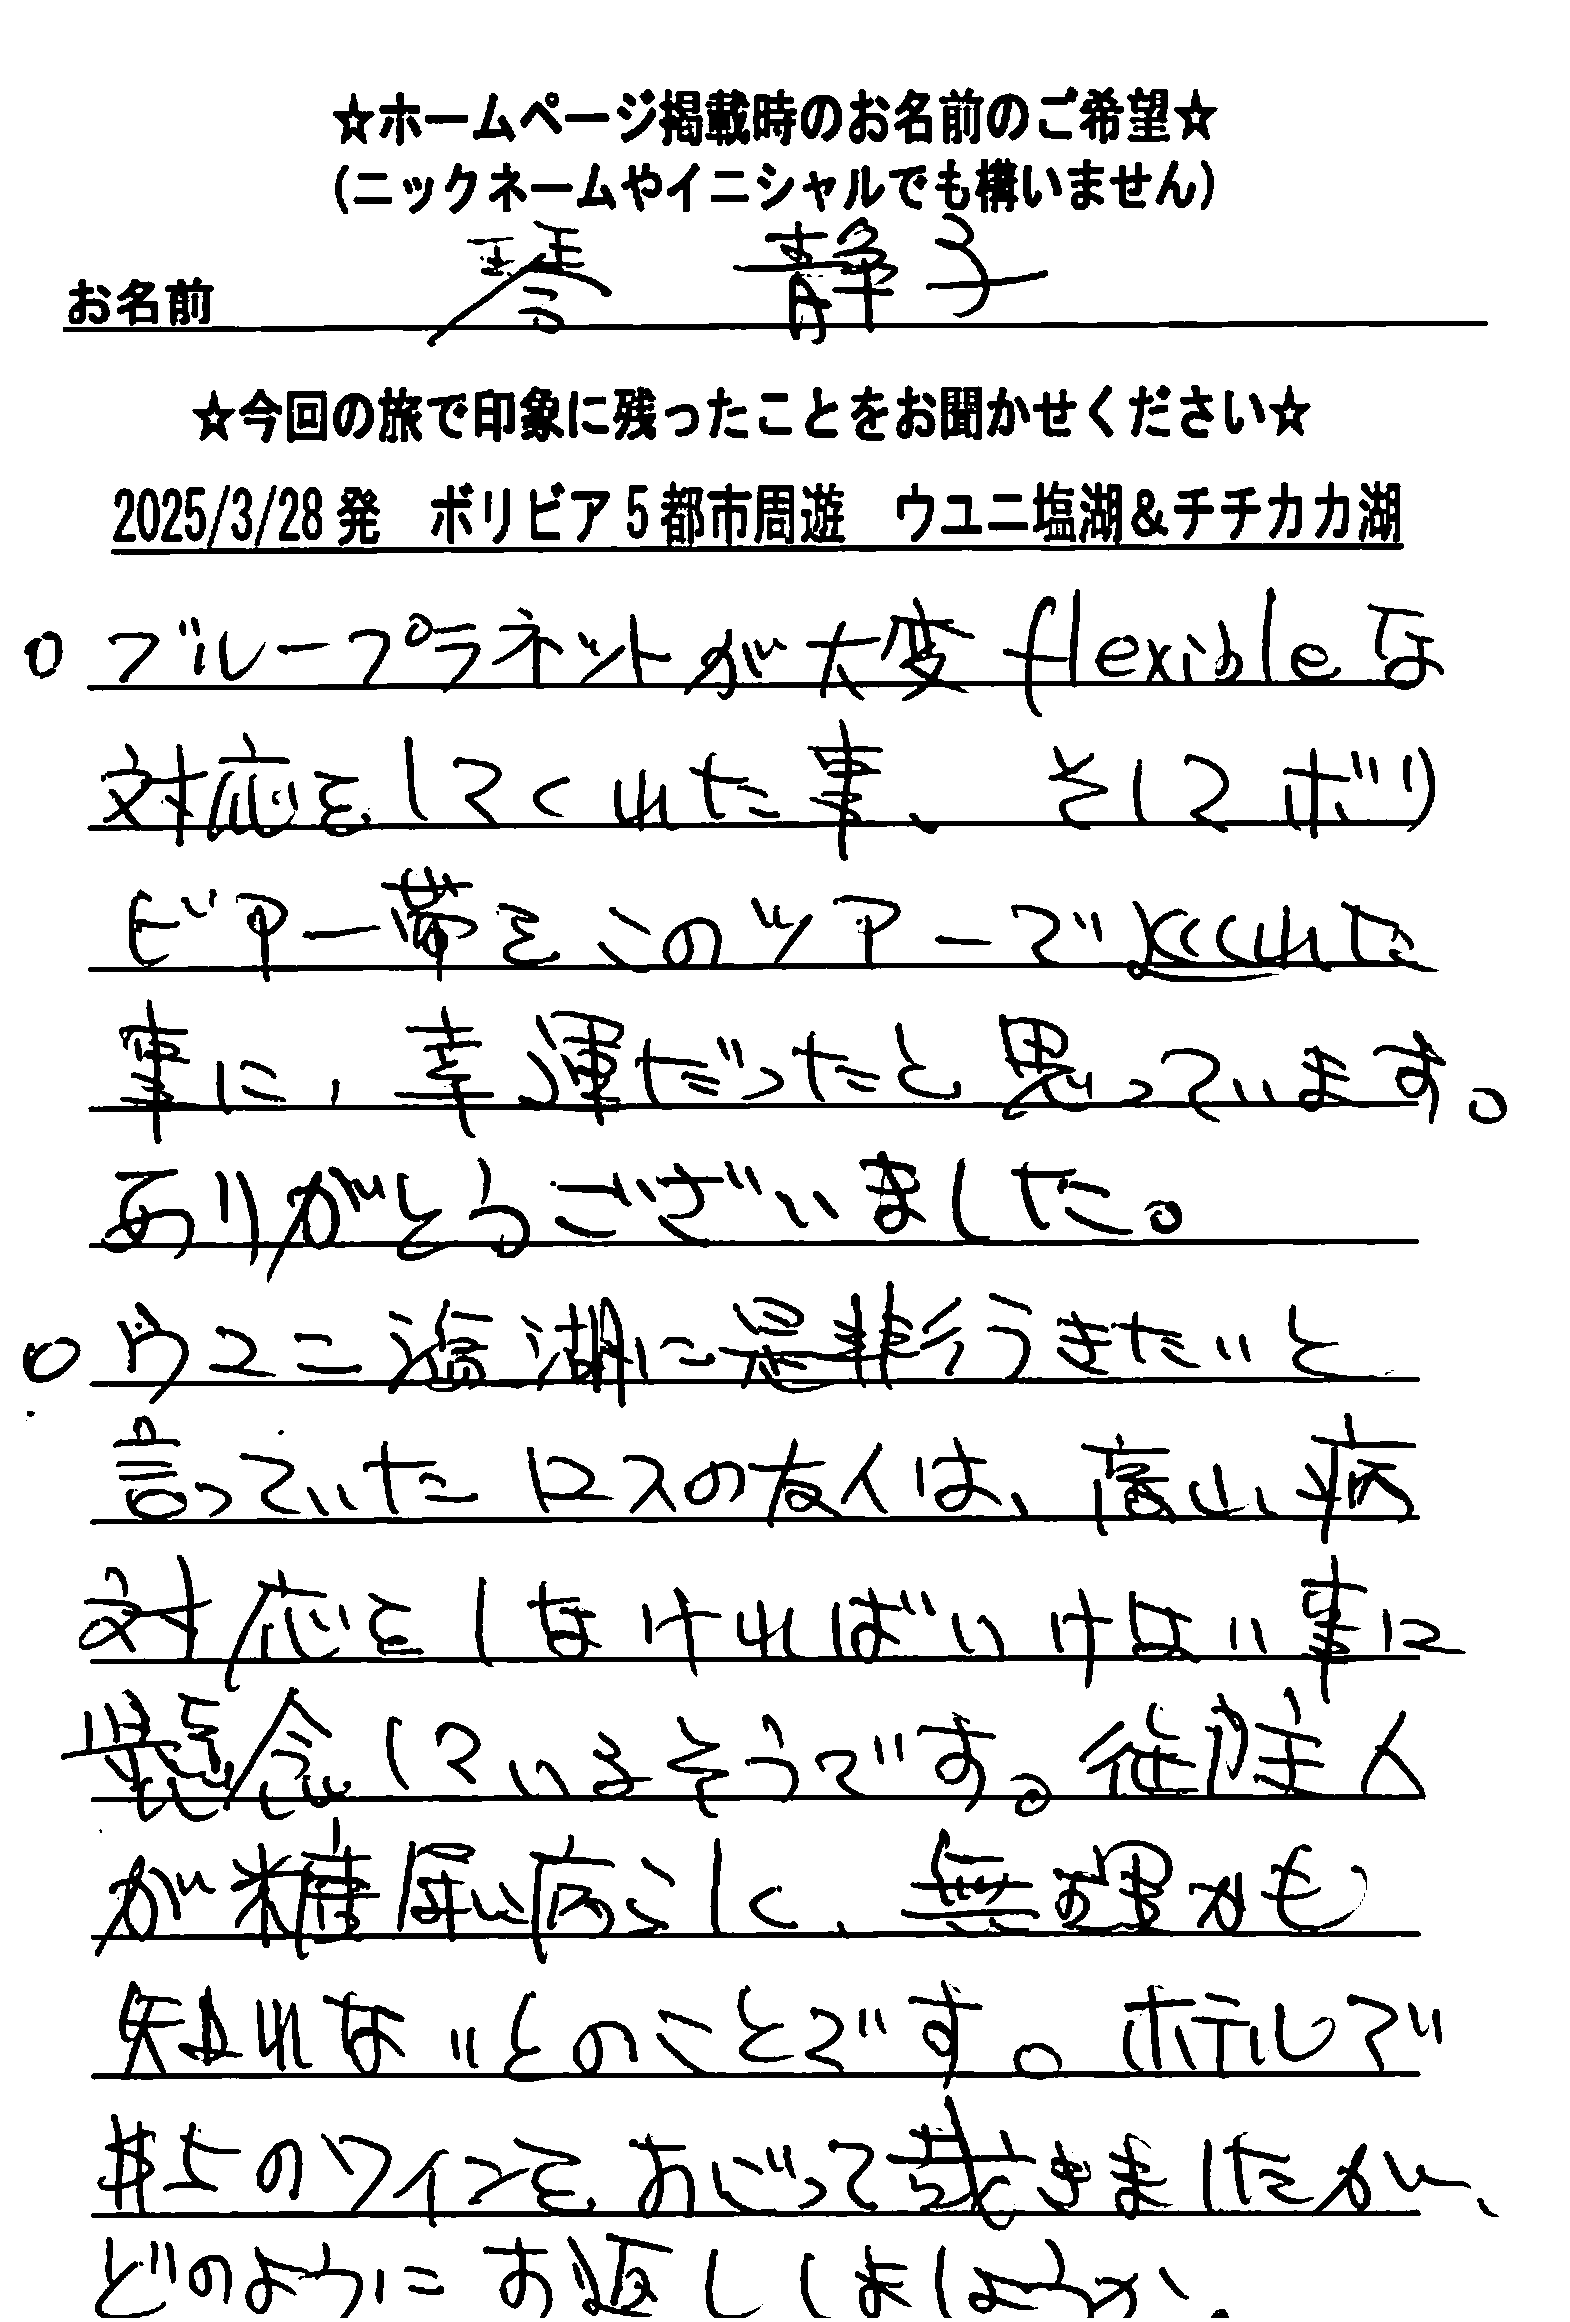 ☆ホームページ掲載時のお名前のご希望☆
(ニックネームやイニシャルでも構いません)
お名前 琴 静子
☆今回の旅で印象に残ったことをお聞かせください☆
2025/3/28 発 ボリビア 5 都市周遊 ウユニ塩湖&チチカカ湖
○ ブループラネットが大変 flexible な
対応をしてくれた事、そしてボリ
ビア一帯をこのツアーで
事に、幸運だったと思っています。
ありがとうございました。
○ ウユニ塩湖に是非行きたいと
言っていたロスの友人は、高山病
対応をしなければいけない事に
懸念しているそうです。御主人
が糖尿病らしく、無理かも
知れないとのことです。ホテルで
$5のワインをおごって戴きましたが、
どのようにお返ししましょうか。